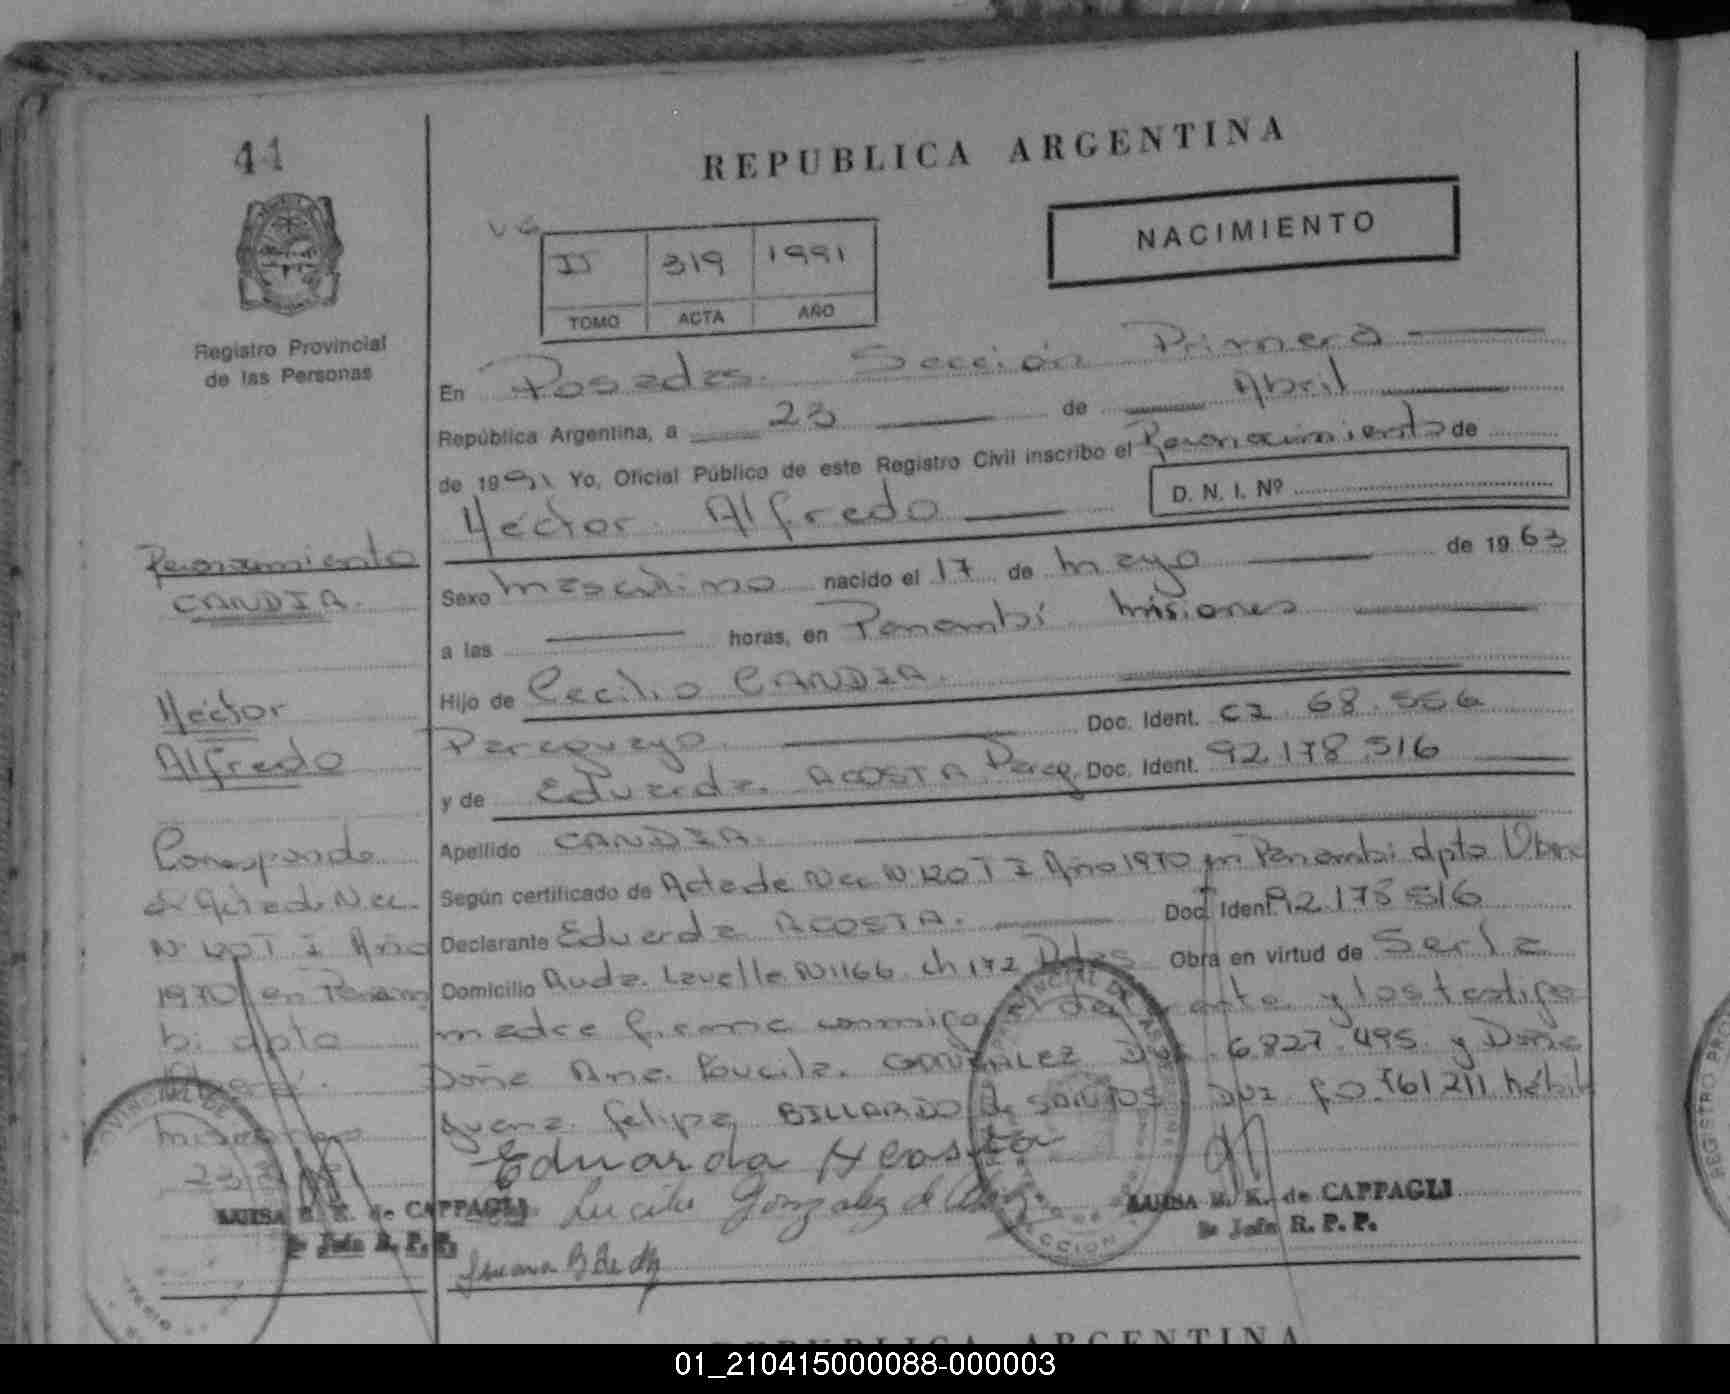 41
REPUBLICA ARGENTINA
NACIMIENTO
II 319 1991
TOMO ACTA AÑO
Registro Provincial
de las Personas
En Posadas. Sección Primera
República Argentina, a 23 de Abril
de 1991 Yo, Oficial Público de este Registro Civil inscribo el Reconocimiento de
D. N. I. Nº
Héctor Alfredo
Reconocimiento
CANDIA.
Héctor
Alfredo
Sexo masculino nacido el 17 de mayo de 1963
a las horas, en Panambí Misiones
Hijo de Cecilio CANDIA.
Paraguayo Doc. Ident. CI 68.556
y de Eduarda ACOSTA Parag. Doc. Ident. 92.178.516
Apellido CANDIA.
Según certificado de Acta de Nac N 120 T I Año 1970 en Panambi dpto Obera
Declarante Eduarda ACOSTA. Doc. Ident. 92.178.516
Domicilio Avda. Lavalle N1166 ch 172 Pdas Obra en virtud de Ser la
madre firma conmigo y los testigo
Doña Ana Lucila GONZALEZ 6.827.495 y Doña
Juana Felipa BILLARDO de SANTOS hábil
Corresponde
a Acta de Nac.
N 120 T I Año
1970 en Panam
bi dpto
Misiones
Eduarda Acosta
Lucila Gonzalez de
LUISA E. K. de CAPPAGLI
Jefe R. P. P.
LUISA E. K. de CAPPAGLI
Jefe R. P. P.
Juana B de
REPUBLICA ARGENTINA
01_210415000088-000003